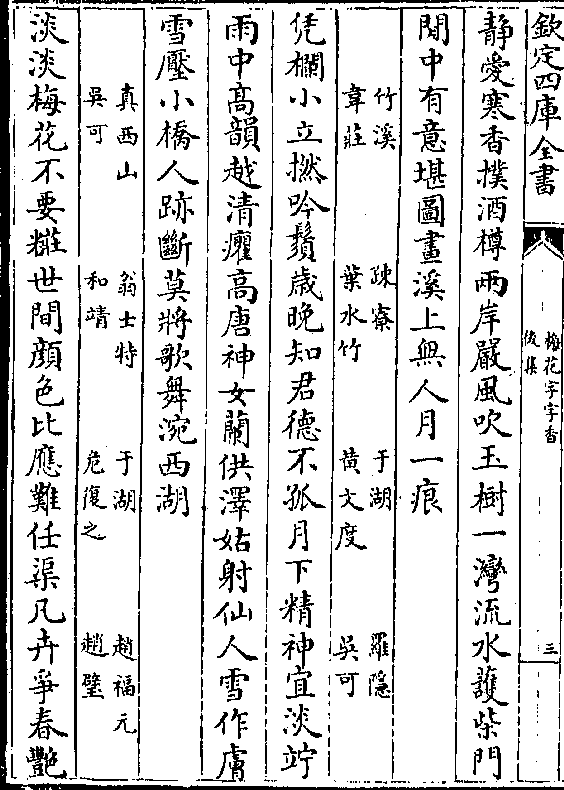 欽定四庫全書
梅花字字香後集
三
静愛寒香撲酒樽兩岸嚴風吹玉樹一灣流水護柴門
閒中有意堪圖畫溪上無人月一痕
竹溪 疎寮 于湖 羅隐
韋莊 葉水竹 黄文度 吳可
凭欄小立撚吟鬚歳晩知君德不孤月下精神宜淡竚
雨中高韻越清癯高唐神女蘭供澤姑射仙人雪作膚
雪壓小橋人跡斷莫將歌舞涴西湖
真西山 翁士特 于湖 趙福元
吳可 和靖 危復之 趙璧
淡淡梅花不要糚世間顔色比應難任渠凡卉爭春艷